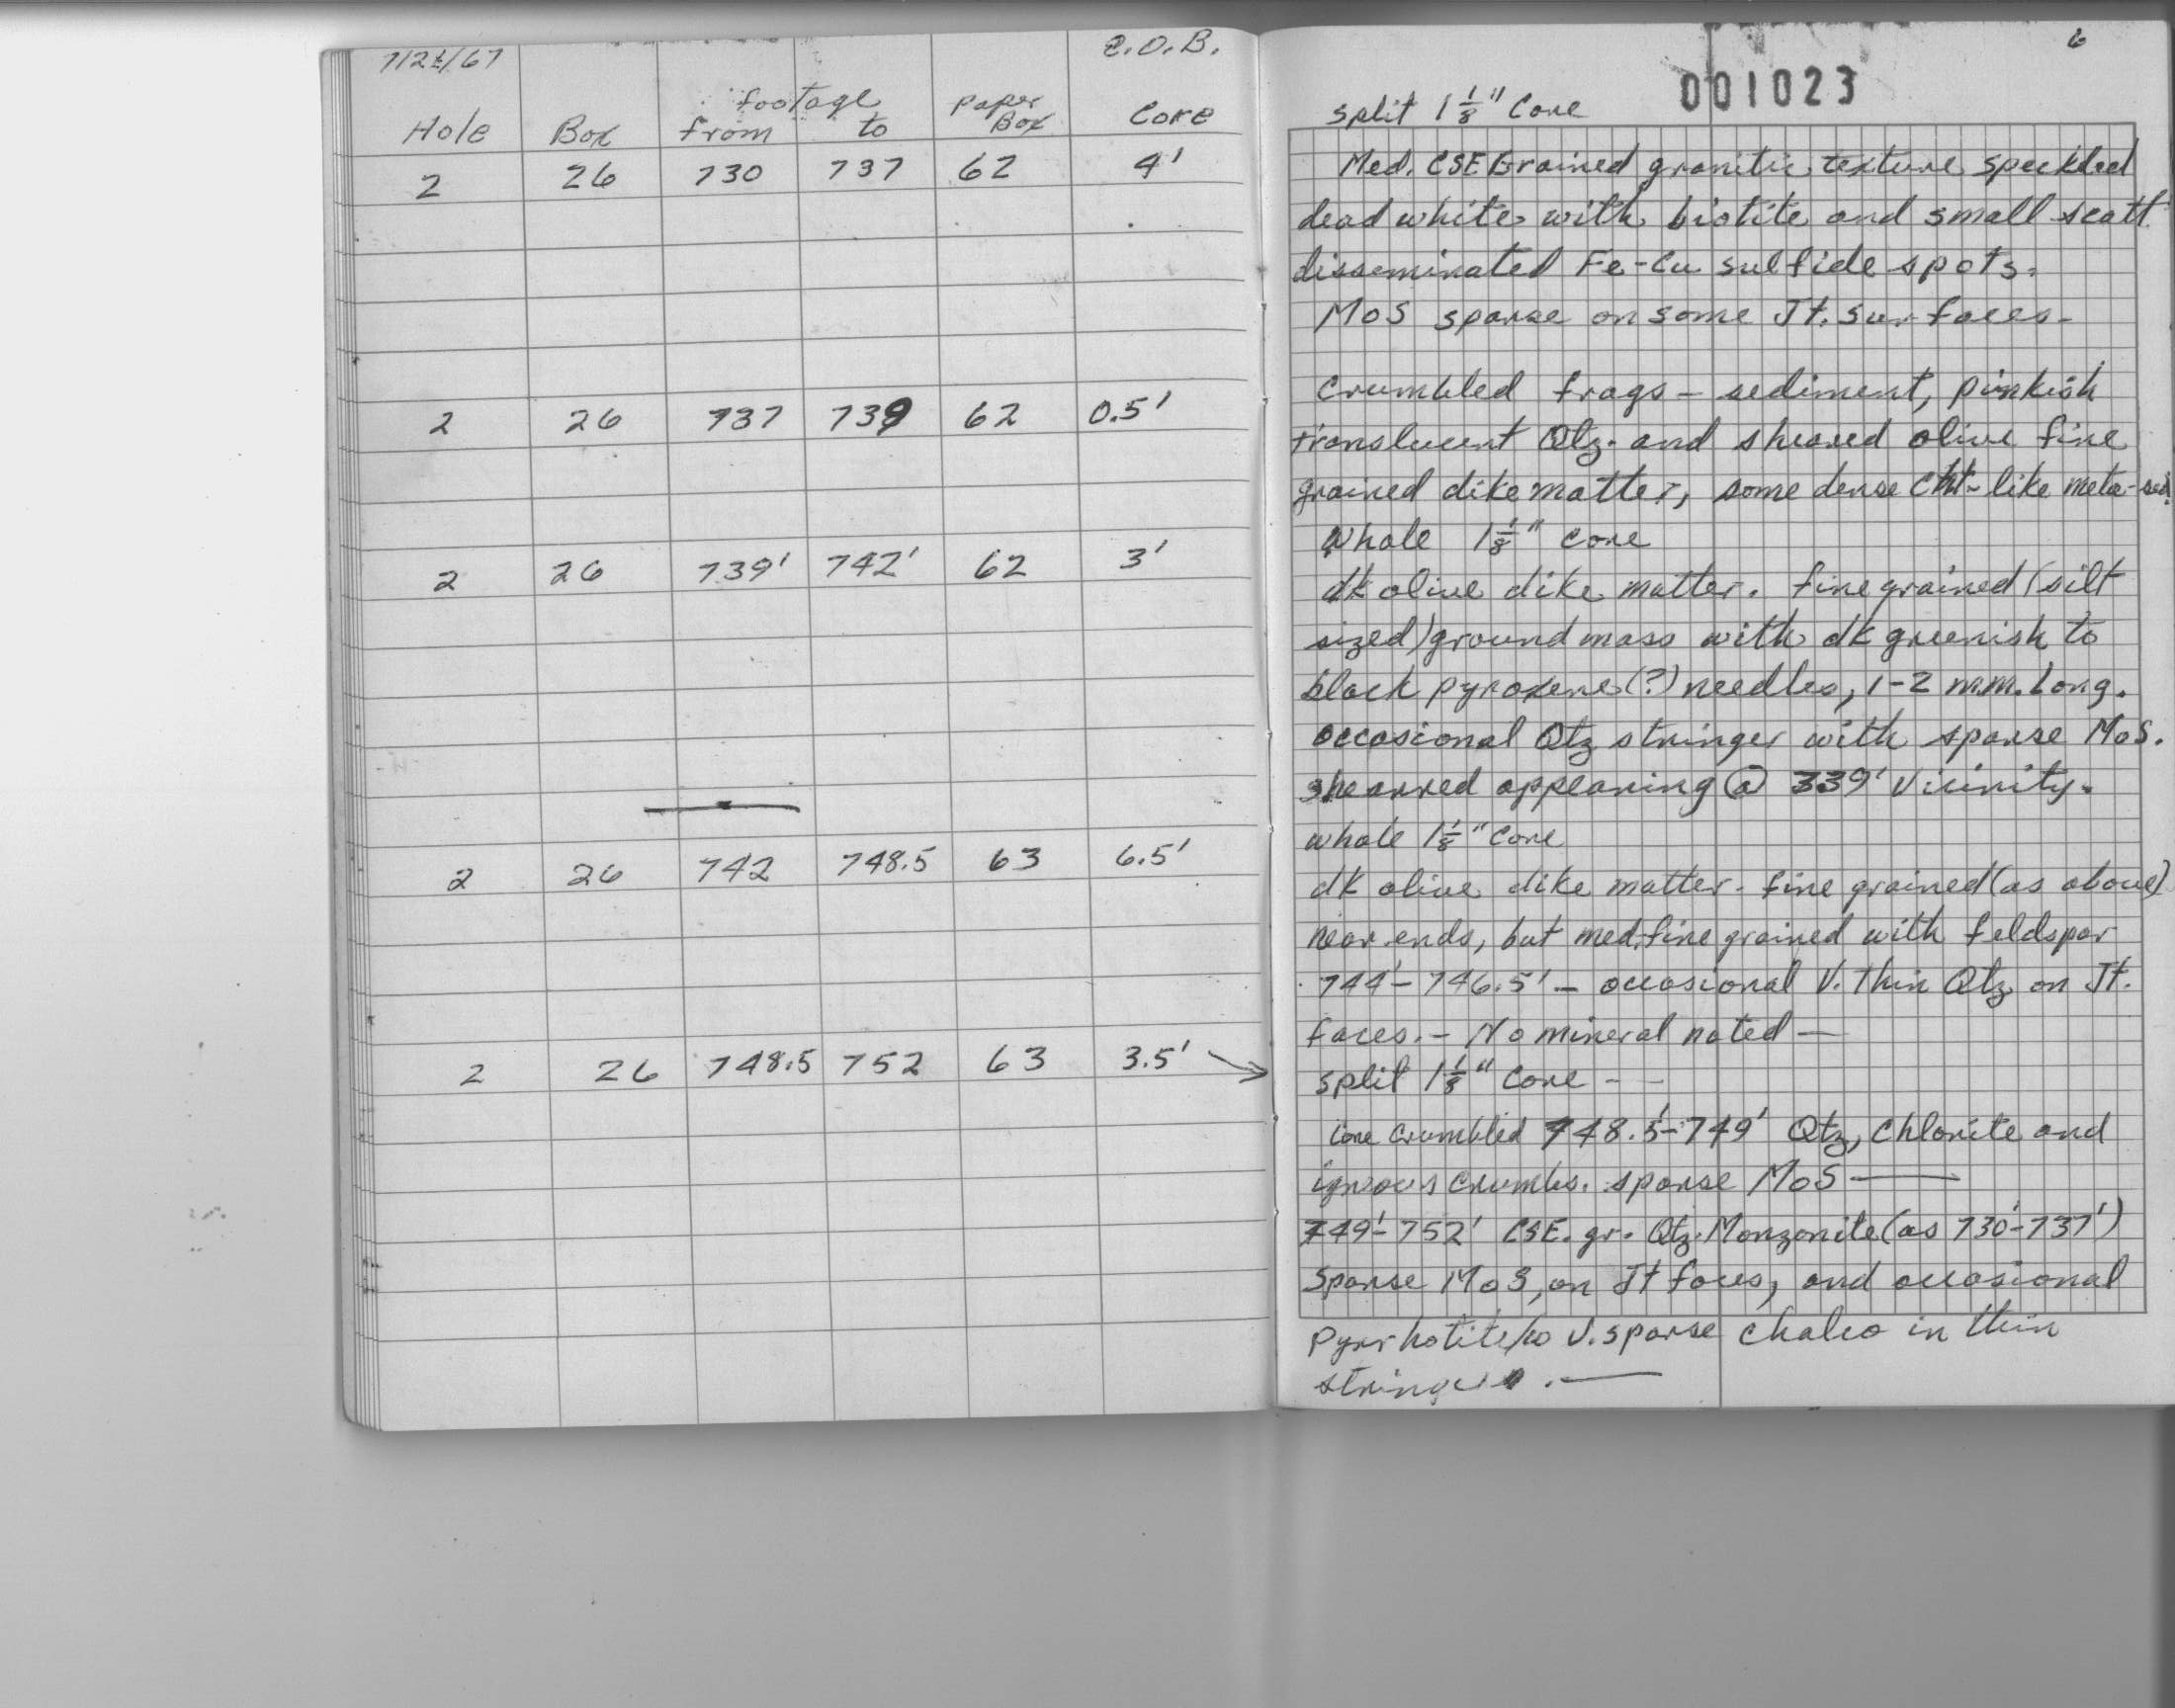 7/2/67 E.O.B.
footage paper
Hole Box from to Box Core
2 26 730 737 62 4'
2 26 737 739 62 0.5'
2 26 739' 742' 62 3'
2 26 742 748.5 63 6.5'
2 26 748.5 752 63 3.5' →
6
001023
split 1 1/8" Core
Med. CSE Grained granitic texture speckled
dead white with biotite and small scatt.
disseminated Fe-Cu sulfide spots.
MoS sparse on some Jt. surfaces-
Crumbled frags - sediment, pinkish
translucent Qtz. and sheared olive fine
grained dike matter, some dense Cht-like meta-sed.
whole 1 1/8" core
dk olive dike matter. fine grained (silt
sized) groundmass with dk greenish to
black pyroxene(?) needles, 1-2 m.m. Long.
occasional Qtz stringer with sparse MoS.
shearred appearing @ 339' Vicinity.
whole 1 1/8" Core
dk olive dike matter - fine grained (as above)
near ends, but med. fine grained with feldspar
744'-746.5' - occasional V. thin Qtz on Jt.
faces. - No mineral noted —
split 1 1/8" Core - -
Core crumbled 748.5'-749' Qtz, Chlorite and
igneous crumbs. sparse MoS —
749'-752' CSE. gr. Qtz. Monzonite (as 730'-737')
Sparse MoS, on Jt faces, and occasional
Pyrrhotite/w V. sparse chalco in thin
stringers. —